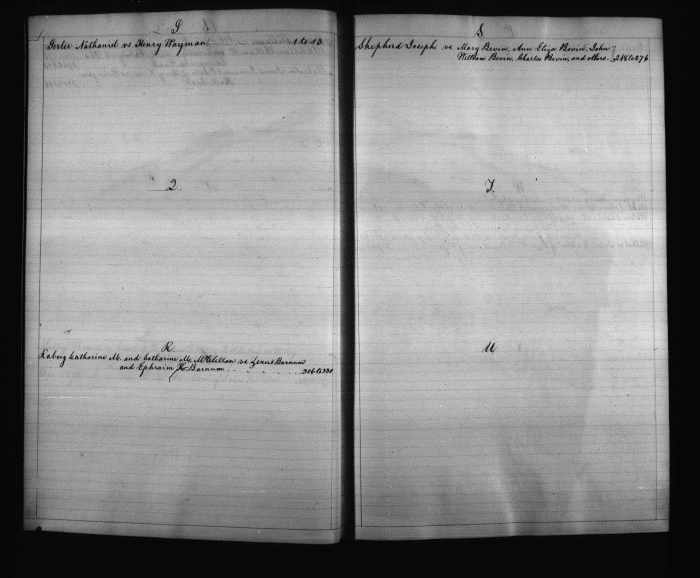 P
Porter Nathaniel vs Henry Wayman. 1 to 13
Q.
R
Raborg Catharine M. and Catharine M. McClellan vs Zenus Barnum
and Ephraim K. Barnum . . . . . 306 to
S
Shepherd Joseph vs Mary Bevin, Ann Eliza Bevin, John
William Bevin, Charles Bevin, and others. 248 to 276
T.
U